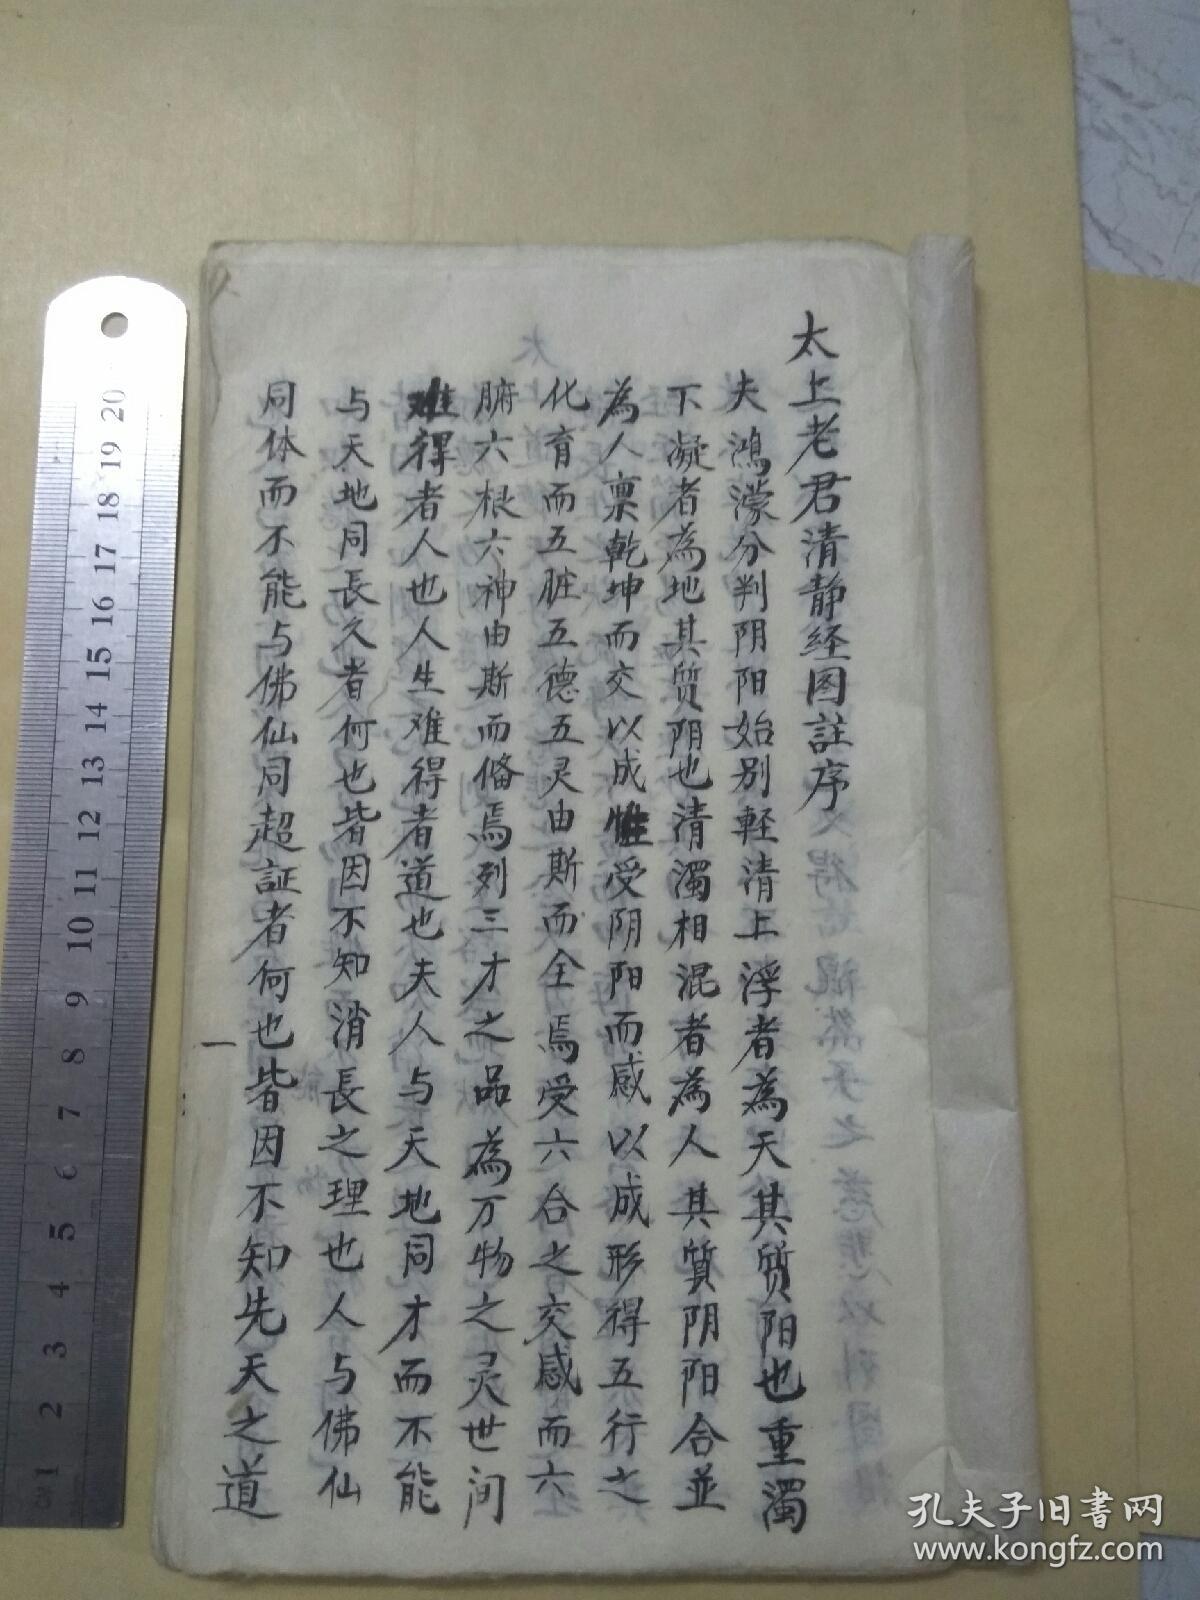 太上老君清静经图註序
夫鴻濛分判阴阳始别軽清上浮者為天其质阳也重濁
下凝者為地其质阴也清濁相混者為人其質阴阳合並
為人禀乾坤而交以成惟受阴阳而感以成形得五行之
化育而五脏五德五灵由斯而全焉受六合之交感而六
腑六根六神由斯而俻焉列三才之品為万物之灵世间
难得者人也人生难得者道也夫人与天地同才而不能
与天地同長久者何也皆因不知消長之理也人与佛仙
同体而不能与佛仙同超証者何也皆因不知先天之道
一
20 19 18 17 16 15 14 13 12 11 10 9 8 7 6 5 4 3 2 1
孔夫子旧書网
www.kongfz.com